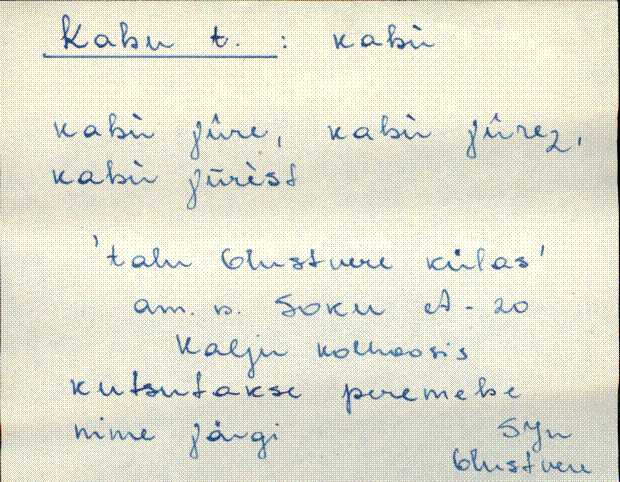 Kabu t. : kabù
kabù jûre, kabù jûrez,
kabù jūrèst
'talu Olustvere külas'
am. n. SOKU A-20
Kalju kolhoosis
kutsutakse peremehe
nime järgi SJn
Olustvere